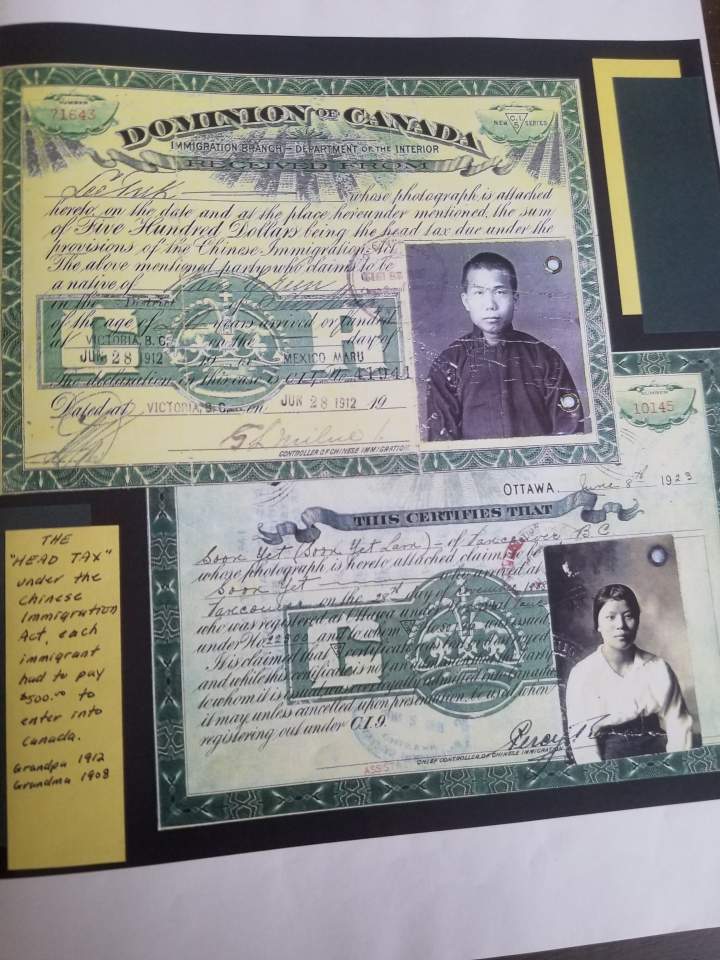 NUMBER
71643
DOMINION OF CANADA
C.I. 5
NEW SERIES
IMMIGRATION BRANCH – DEPARTMENT OF THE INTERIOR
RECEIVED FROM
Lee
whose photograph is attached
hereto, on the date and at the place hereunder mentioned, the sum
of Five Hundred Dollars being the head tax due under the
provisions of the Chinese Immigration Act.
The above mentioned party who claims to be
a native of
in the District of
of the age of years arrived or landed
at VICTORIA, B.C. on the day of
JUN 28 1912 MEXICO MARU
The declaration in this case is C.I.4 No. 41941
Dated at VICTORIA, B.C. on JUN 28 1912 19
CONTROLLER OF CHINESE IMMIGRATION
NUMBER
10145
OTTAWA, June 8th 1923
THIS CERTIFIES THAT
Soon Yet (Soon Yet Lam) – of Vancouver, B.C.
whose photograph is hereto attached claims to be
Soon Yet who arrived at
Vancouver on the 28th day of
who was registered at Ottawa under
under No. and to whom was issued
It is claimed that certificate
and while this certificate is not
to whom it is issued was legally admitted into Canada
it may unless cancelled, upon presentation, be used when
registering out under C.I.9.
CHIEF CONTROLLER OF CHINESE IMMIGRATION
THE
"HEAD TAX"
under the
Chinese
Immigration
Act, each
immigrant
had to pay
$500.00 to
enter into
Canada.
Grandpa 1912
Grandma 1908